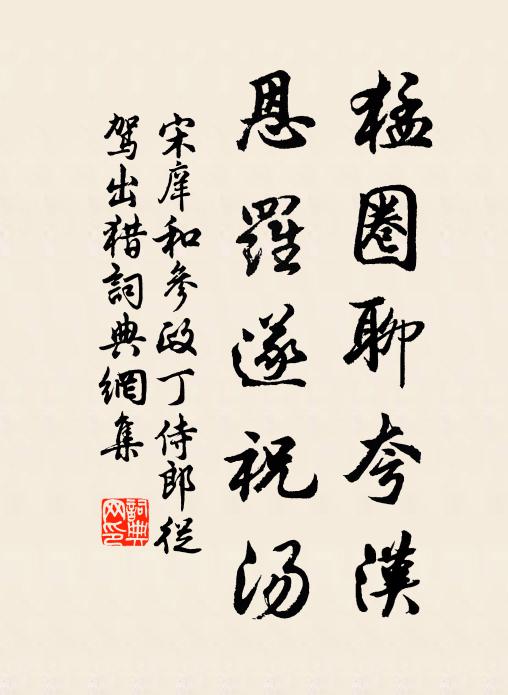 猛圈聊夸漢
恩羅遂祝汤
宋庠和參政丁侍郎從
驾出猎詞典網集
詞典
网印